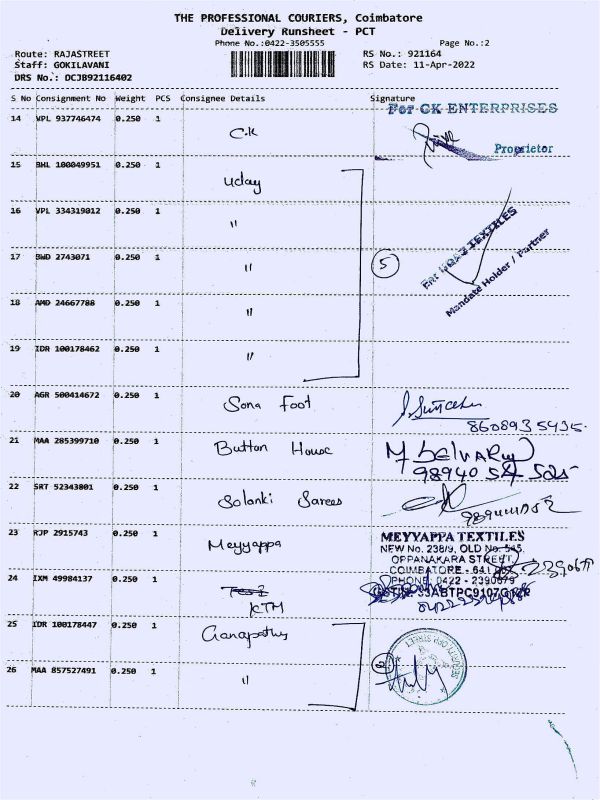 THE PROFESSIONAL COURIERS, Coimbatore
Delivery Runsheet - PCT
Phone No.:0422-3505555
Page No.:2
Route: RAJASTREET
RS No.: 921164
Staff: GOKILAVANI
RS Date: 11-Apr-2022
DRS No.: DCJB92116402
S No Consignment No Weight PCS Consignee Details Signature
For CK ENTERPRISES
14 VPL 937746474 0.250 1 C.K
Proprietor
15 BHL 100049951 0.250 1 Uday
16 VPL 334319012 0.250 1 "
TEXTILES
Mandate Holder / Partner
17 BWD 2743071 0.250 1 " 5
18 AMD 24667788 0.250 1 "
19 IDR 100178462 0.250 1 "
20 AGR 500414672 0.250 1 Sona Foot
8608935435
21 MAA 285399710 0.250 1 Button House
98940 54 525
22 SRT 52343801 0.250 1 Solanki Sarees
23 RJP 2915743 0.250 1 Meyyappa
MEYYAPPA TEXTILES
NEW No. 238/9, OLD No. 545,
OPPANAKARA STREET,
COIMBATORE - 641
PHONE: 0422 - 2390679
24 IXM 49984137 0.250 1 KTM
25 IDR 100178447 0.250 1 Ganapathy
26 MAA 857527491 0.250 1 "